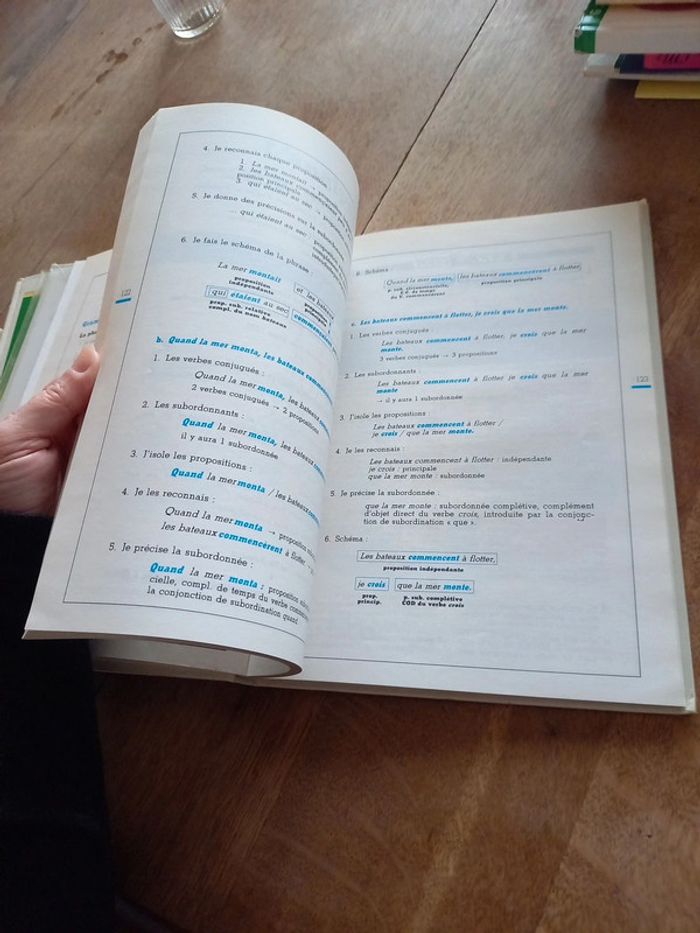 4. Je reconnais chaque proposition
1. La mer montait →
2. les bateaux commençaient
position principale
3. qui étaient au sec →
5. Je donne des précisions sur la
... qui étaient au sec :
6. Je fais le schéma de la phrase :
La mer montait
proposition
indépendante
et les bateaux
proposition
principale
qui étaient au sec
prop. sub. relative
compl. du nom bateaux
122
b. Quand la mer monta, les bateaux
1. Les verbes conjugués :
Quand la mer monta, les bateaux
2 verbes conjugués → 2 propositions
2. Les subordonnants :
Quand la mer monta, les bateaux
il y aura 1 subordonnée
3. J'isole les propositions :
Quand la mer monta / les bateaux
4. Je les reconnais :
Quand la mer monta → proposition
les bateaux commencèrent à flotter
5. Je précise la subordonnée :
Quand la mer monta : proposition
cielle, compl. de temps du verbe
la conjonction de subordination quand
6. Schéma
Quand la mer monta, les bateaux commencèrent à flotter,
p. sub. circonstancielle,
C.C. de temps
du V. commencèrent
proposition principale
c. Les bateaux commencent à flotter, je crois que la mer monte.
1. Les verbes conjugués :
Les bateaux commencent à flotter, je crois que la mer
monte.
3 verbes conjugués → 3 propositions
2. Les subordonnants :
Les bateaux commencent à flotter je crois que la mer
monte
→ il y aura 1 subordonnée
3. J'isole les propositions :
Les bateaux commencent à flotter /
je crois / que la mer monte.
4. Je les reconnais :
Les bateaux commencent à flotter : indépendante
je crois : principale
que la mer monte : subordonnée
5. Je précise la subordonnée :
que la mer monte : subordonnée complétive, complément
d'objet direct du verbe crois, introduite par la conjonc-
tion de subordination « que ».
6. Schéma :
Les bateaux commencent à flotter,
proposition indépendante
je crois que la mer monte.
prop. p. sub. complétive
princip. COD du verbe crois
123